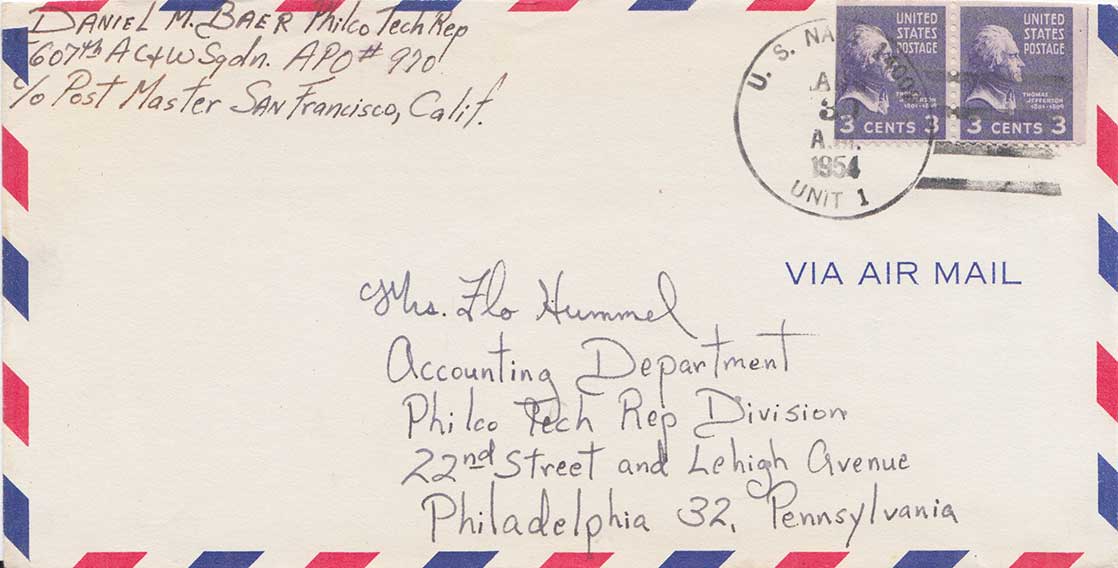 DANIEL M. BAER Philco Tech Rep
607th AC+W Sqdn. APO# 970
c/o Post Master SAN Francisco, Calif.
UNITED STATES POSTAGE
THOMAS JEFFERSON
1801-1809
3 CENTS 3
UNITED STATES POSTAGE
THOMAS JEFFERSON
1801-1809
3 CENTS 3
U. S. NA
A.M.
1954
UNIT 1
VIA AIR MAIL
Mrs. Flo Hummel
Accounting Department
Philco Tech Rep Division
22nd Street and Lehigh Avenue
Philadelphia 32, Pennsylvania